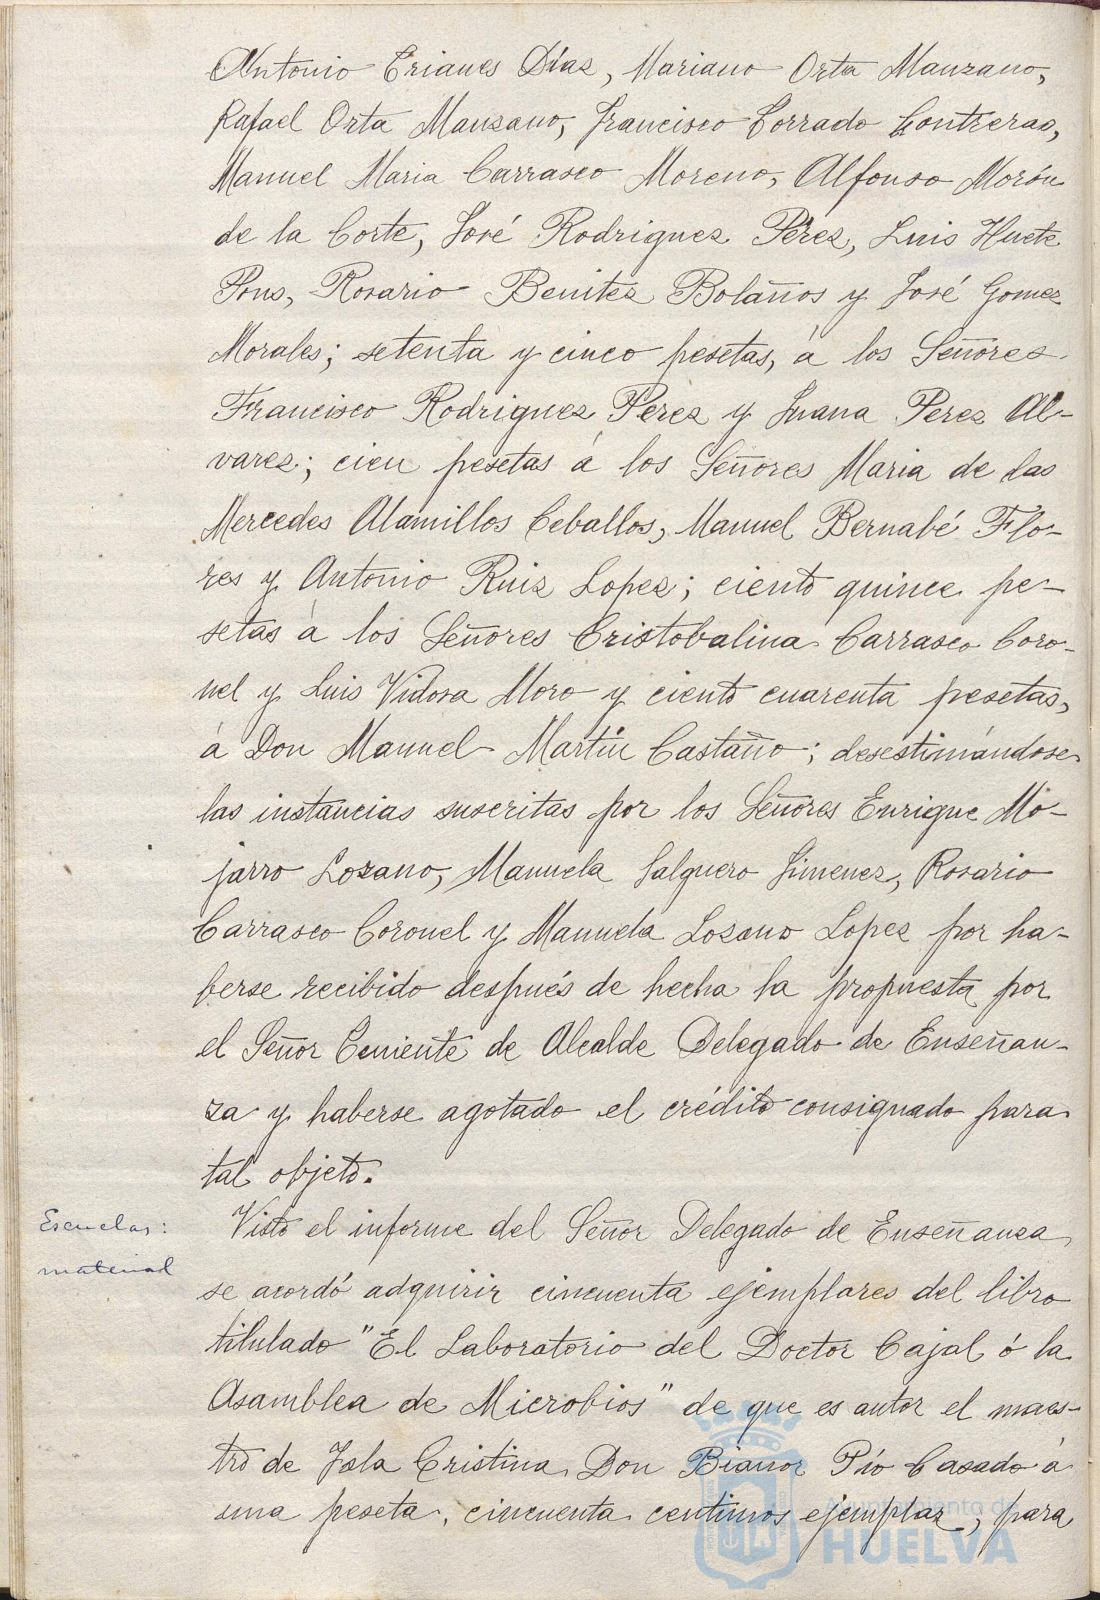 Antonio Erianes Días, Mariano Orta Manzano,
Rafael Orta Manzano, Francisco Corrado Contreras,
Manuel Maria Carrasco Moreno, Alfonso Morón
de la Corte, José Rodriguez Pérez, Luis Huete
Pons, Rosario Benitez Bolaños y José Gomez
Morales; setenta y cinco pesetas, á los Señores
Francisco Rodriguez Perez y Juana Perez Al-
varez; cien pesetas á los Señores Maria de las
Mercedes Alamillos Ceballos, Manuel Bernabé Flo-
res y Antonio Ruiz Lopez; ciento quince pe-
setas á los Señores Cristobalina Carrasco Coro-
nel y Luis Vidosa Moro y ciento cuarenta pesetas,
á Don Manuel Martin Castaño; desestimándose
las instancias suscritas por los Señores Enrique Mo-
jarro Lozano, Manuela Salguero Jimenez, Rosario
Carrasco Coronel y Manuela Lozano Lopez por ha-
berse recibido después de hecha la propuesta por
el Señor Teniente de Alcalde Delegado de Enseñan-
za y haberse agotado el crédito consignado para
tal objeto.
Escuelas:
material
Visto el informe del Señor Delegado de Enseñanza
se acordó adquirir cincuenta ejemplares del libro
titulado "El Laboratorio del Doctor Cajal ó la
Asamblea de Microbios" de que es autor el maes-
tro de Isla Cristina Don Bianor Pío Casado á
una peseta, cincuenta centimos ejemplar, para
Ayuntamiento de
HUELVA